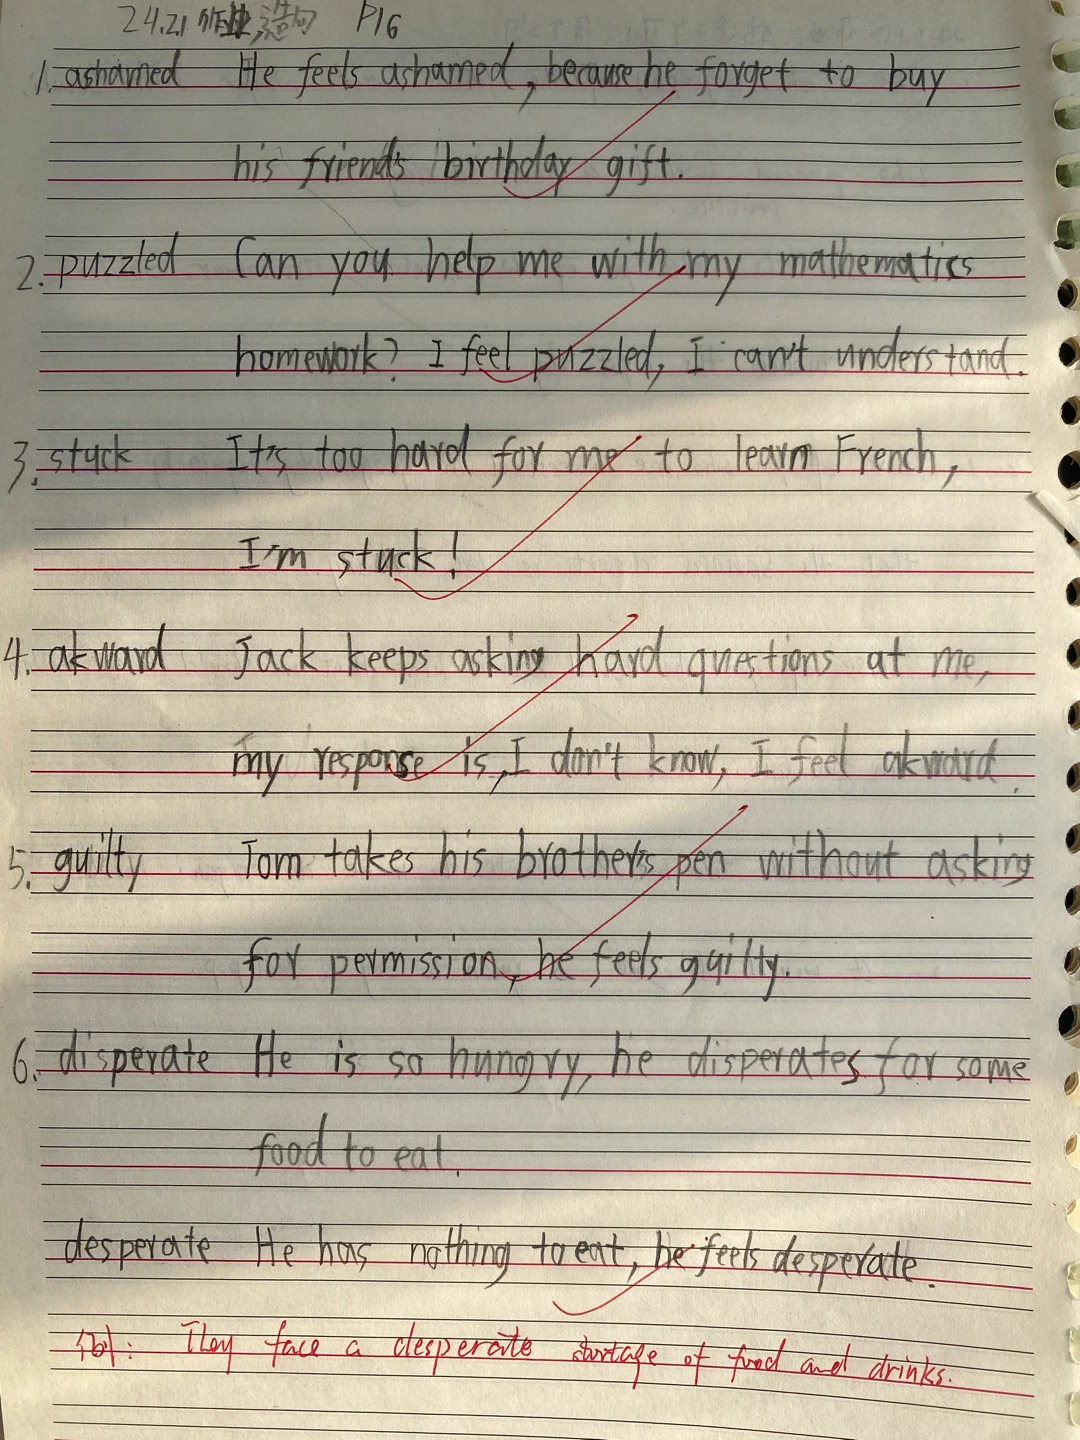 24.21 作业,造句 P16
1. ashamed He feels ashamed, because he forget to buy
his friend's birthday gift.
2. puzzled Can you help me with my mathematics
homework? I feel puzzled, I can't understand.
3. stuck It's too hard for me to learn French,
I'm stuck!
4. akward Jack keeps asking hard questions at me,
my response is, I don't know, I feel akward.
5. guilty Tom takes his brother's pen without asking
for permission, he feels guilty.
6. disperate He is so hungry, he disperates for some
food to eat.
desperate He has nothing to eat, he feels desperate.
例: They face a desperate shortage of food and drinks.